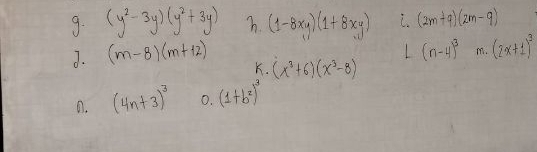 g. (y²-3y)(y²+3y) h. (1-8xy)(1+8xy) i. (2m+9)(2m-9)
J. (m-8)(m+12) L (n-4)³ m. (2x+1)³
K. (x³+6)(x³-8)
n. (4n+3)³ o. (1+b²)³